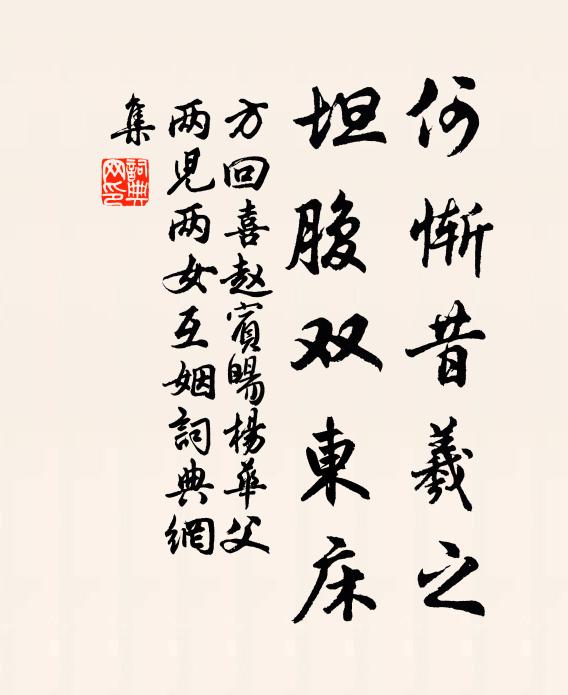 何惭昔羲之
坦腹双東床
方回喜赵賓暘楊華父
两児两女互姻詞典網
集
詞典网印